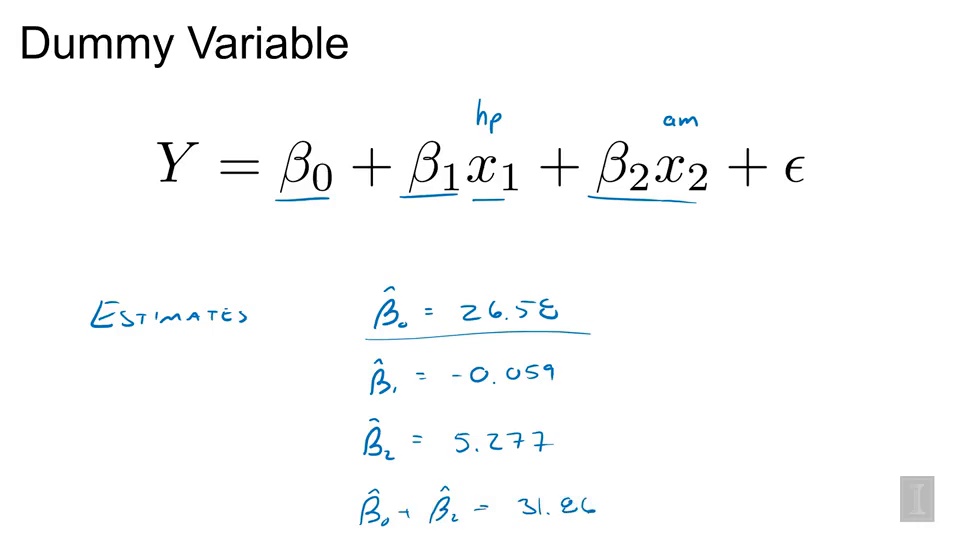 Dummy Variable
hp am
Y = β₀ + β₁x₁ + β₂x₂ + ϵ
ESTIMATES β̂₀ = 26.58
β̂₁ = -0.059
β̂₂ = 5.277
β̂₀ + β̂₂ = 31.86
I